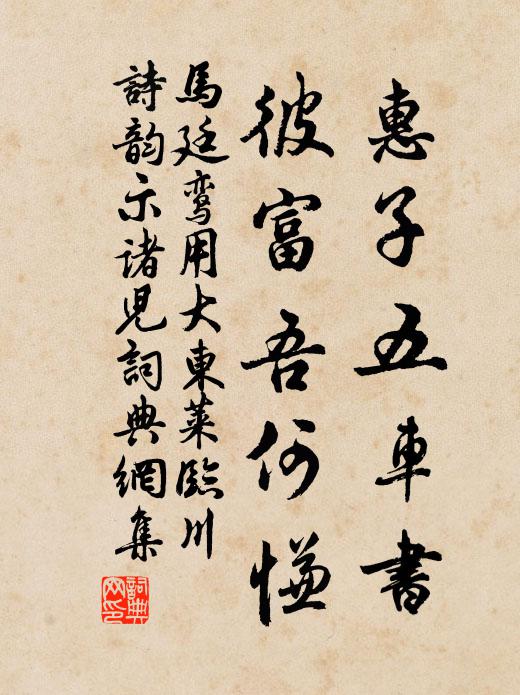 惠子五車書
彼富吾何慊
馬廷鸞用大東萊臨川
詩韵示诸兒詞典網集
詞典网印